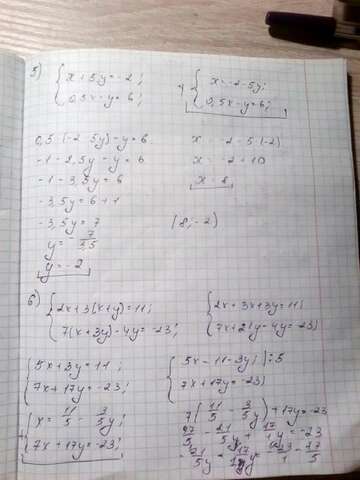 5) { x + 5y = -2;
0,5x - y = 6;
{ x = -2 - 5y;
0,5x - y = 6;
0,5 · (-2 - 5y) - y = 6
-1 - 2,5y - y = 6
-1 - 3,5y = 6
-3,5y = 6 + 1
-3,5y = 7
y = - 7/3,5
y = -2
x = -2 - 5·(-2)
x = -2 + 10
x = 8
(8; -2)
6) { 2x + 3(x + y) = 11;
7(x + 3y) - 4y = -23;
{ 2x + 3x + 3y = 11;
7x + 21y - 4y = -23;
{ 5x + 3y = 11;
7x + 17y = -23;
{ 5x = 11 - 3y; | : 5
7x + 17y = -23;
{ x = 11/5 - 3/5 y;
7x + 17y = -23;
7( 11/5 - 3/5 y) + 17y = -23
77/5 - 21/5 y + 17/1 y = -23